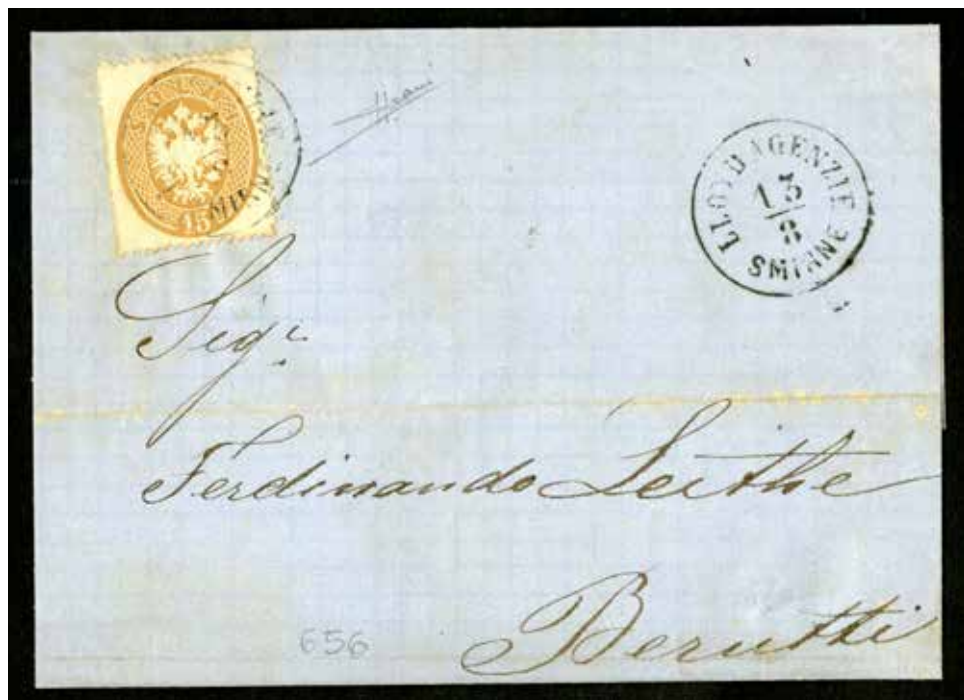 SOLDI
15
LLOYD AGENZIE
13/8
SMIRNE
Sig.r
Ferdinando Leithe
Berutti
656